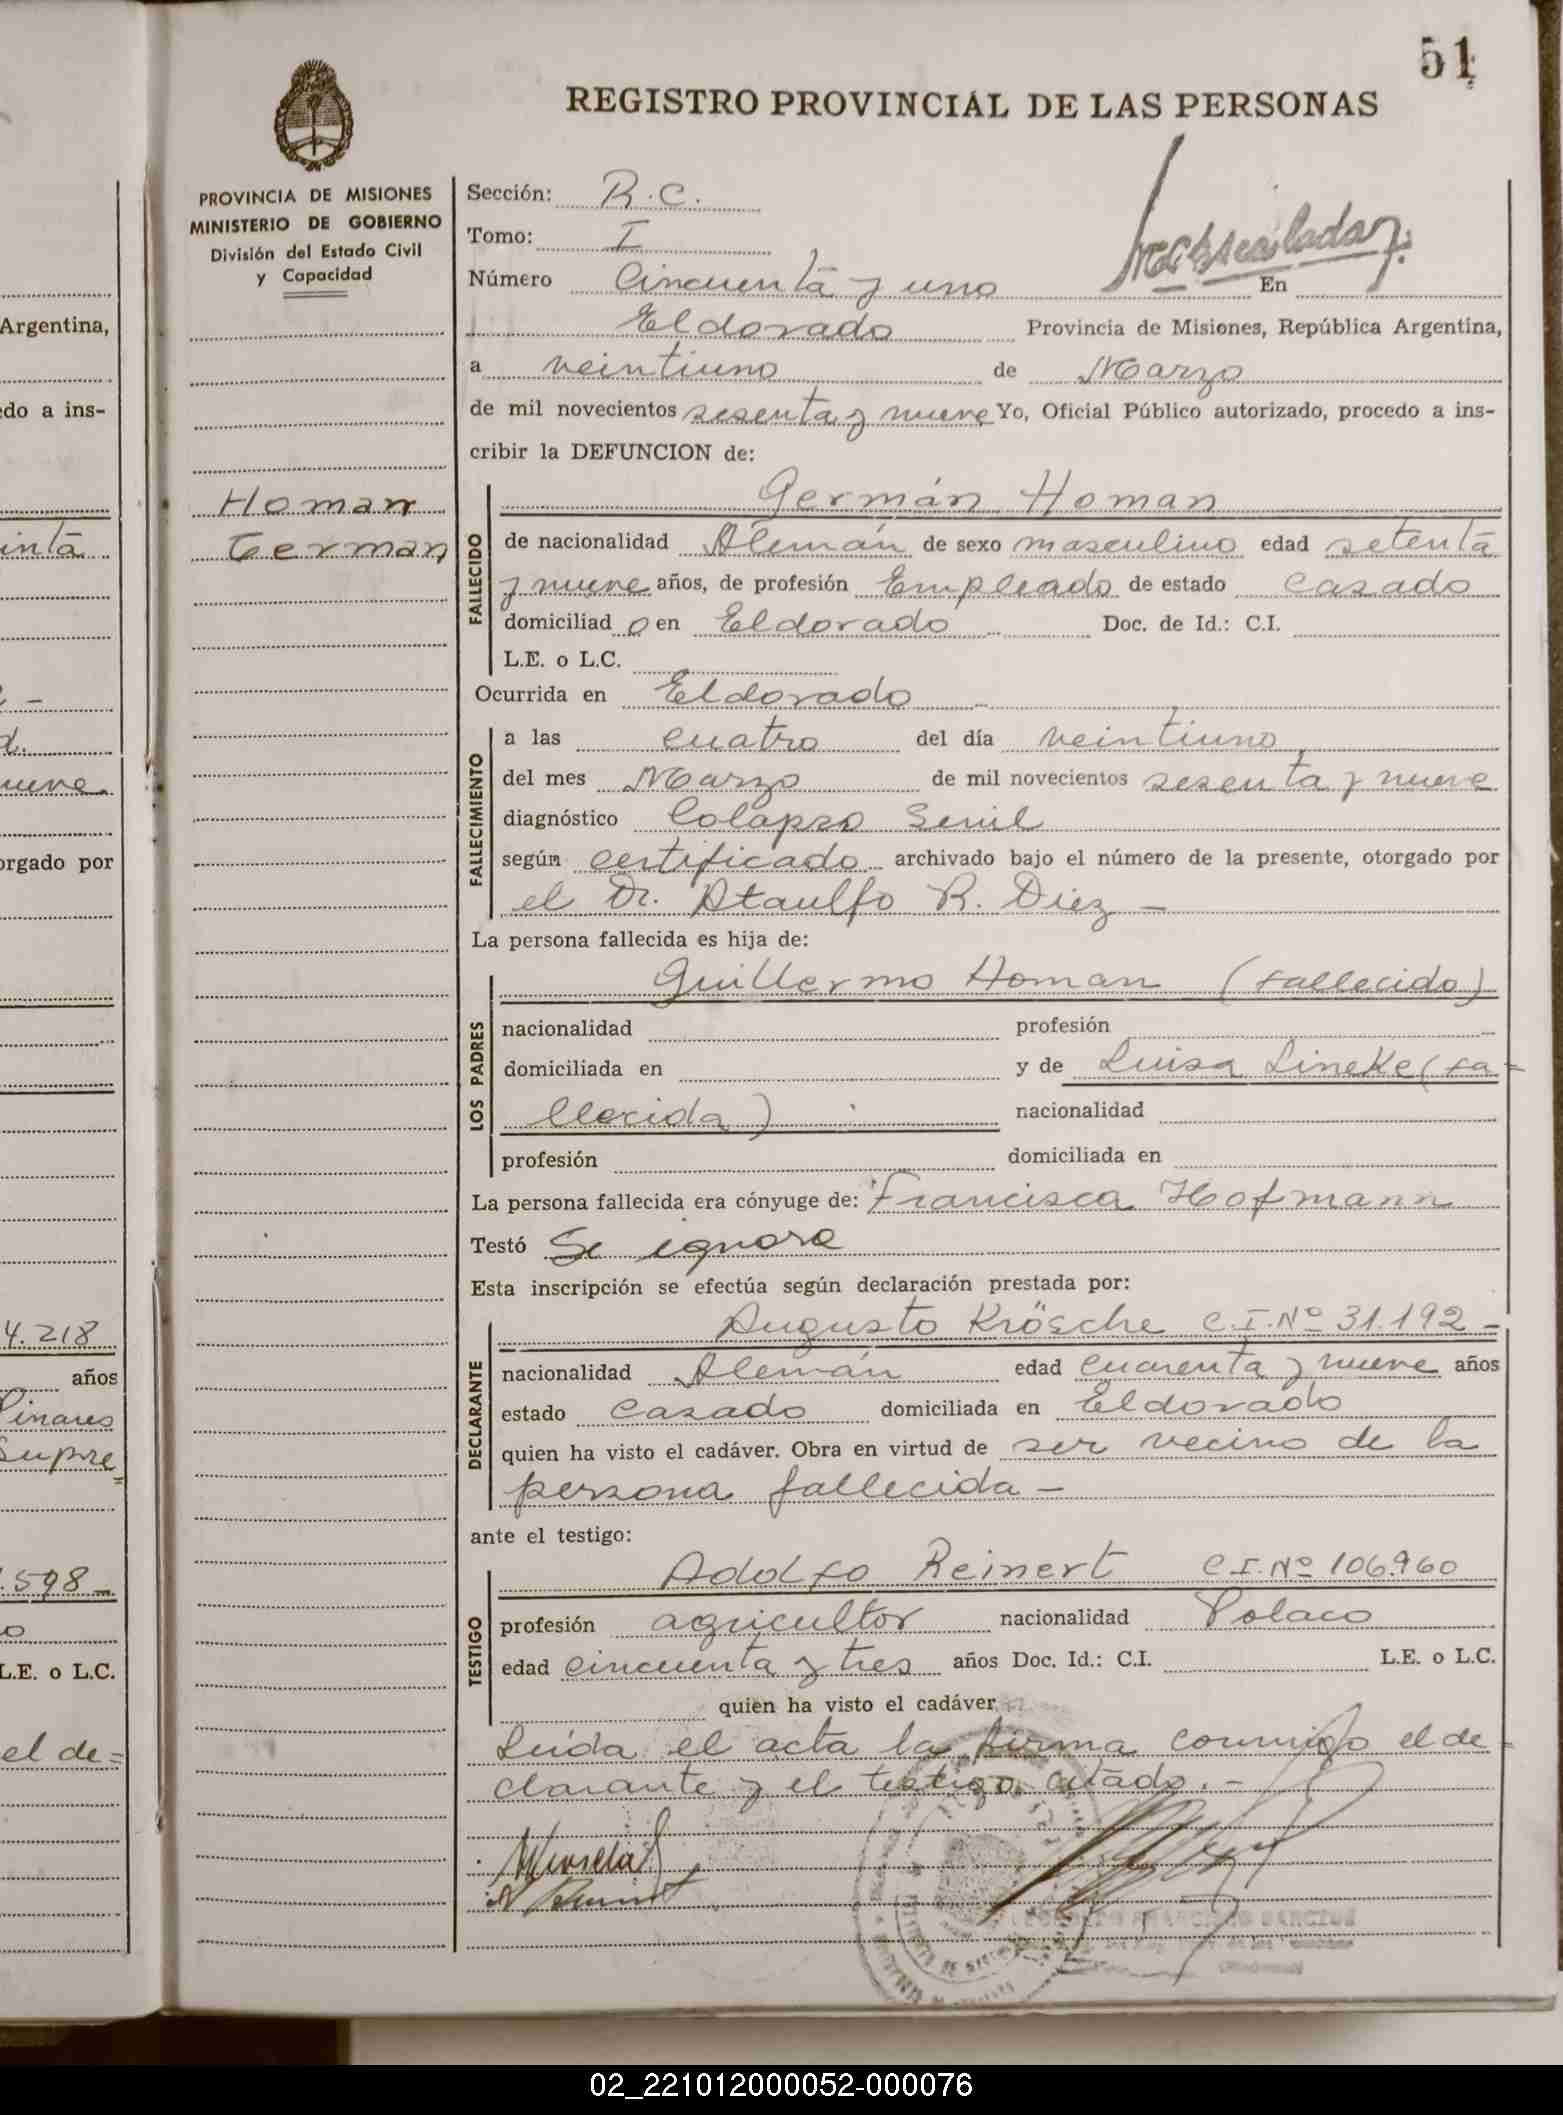 51
REGISTRO PROVINCIAL DE LAS PERSONAS
PROVINCIA DE MISIONES
MINISTERIO DE GOBIERNO
División del Estado Civil
y Capacidad
Sección: R.C.
Tomo: I
Número Cincuenta y uno En
Eldorado Provincia de Misiones, República Argentina,
a veintiuno de Marzo
de mil novecientos sesenta y nueve Yo, Oficial Público autorizado, procedo a ins-
cribir la DEFUNCION de:
Homan
German
FALLECIDO
Germán Homan
de nacionalidad Alemán de sexo masculino edad setenta
y nueve años, de profesión Empleado de estado casado
domiciliad o en Eldorado Doc. de Id.: C.I.
L.E. o L.C.
Ocurrida en Eldorado
FALLECIMIENTO
a las cuatro del día veintiuno
del mes Marzo de mil novecientos sesenta y nueve
diagnóstico Colapso Senil
según certificado archivado bajo el número de la presente, otorgado por
el Dr. Ataulfo R. Diez -
La persona fallecida es hija de:
LOS PADRES
Guillermo Homan (fallecido)
nacionalidad profesión
domiciliada en y de Luisa Lineke (fa=
llecida) nacionalidad
profesión domiciliada en
La persona fallecida era cónyuge de: Francisca Hofmann
Testó Se ignora
Esta inscripción se efectúa según declaración prestada por:
DECLARANTE
Augusto Krösche C.I. Nº 31.192 -
nacionalidad Alemán edad cuarenta y nueve años
estado casado domiciliada en Eldorado
quien ha visto el cadáver. Obra en virtud de ser vecino de la
persona fallecida -
ante el testigo:
TESTIGO
Adolfo Reinert C.I. Nº 106.960
profesión agricultor nacionalidad Polaco
edad cincuenta y tres años Doc. Id.: C.I. L.E. o L.C.
quien ha visto el cadáver
Leída el acta la firma conmigo el de=
clarante y el testigo citado. -
Argentina,
do a ins-
inta
nueve
orgado por
4.218
años
Pinares
.598
o
L.E. o L.C.
el de=
02_221012000052-000076